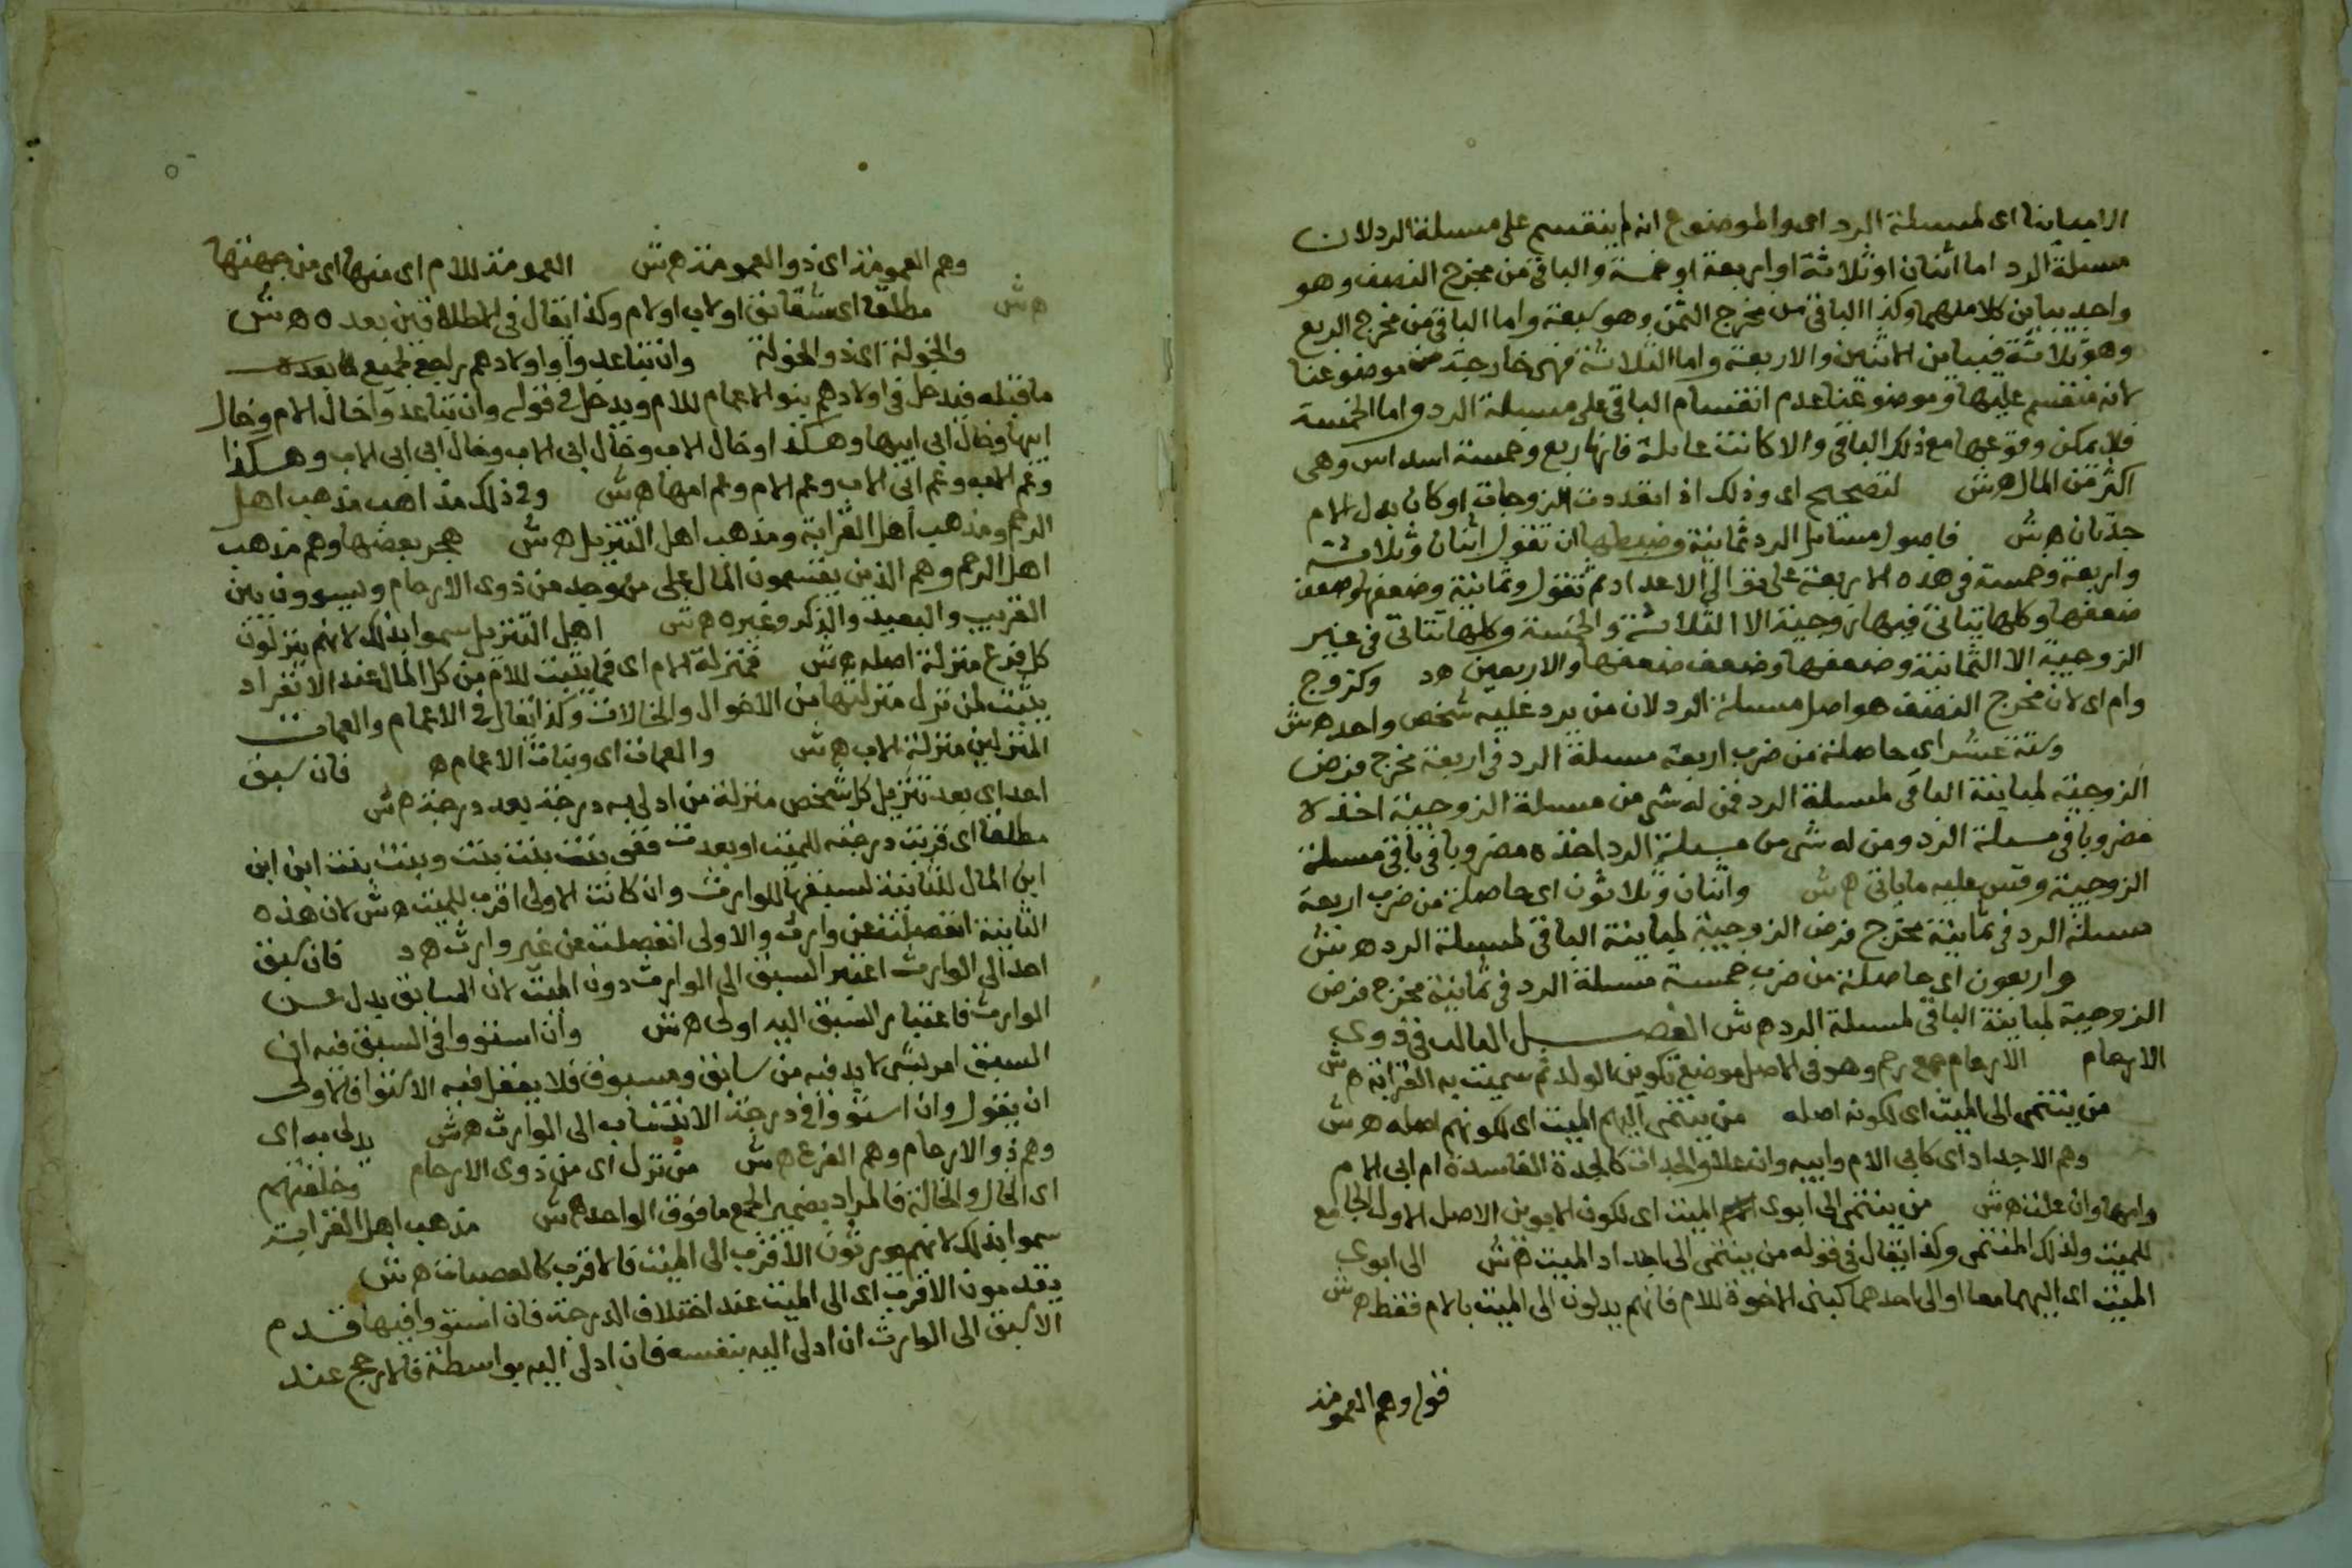 الا مباينا اى لمسىلة الرد اى والموضوع انه لم ينقسم على مسىلة الرد لان
مسىلة الرد اما اثنان او ثلاثة او اربعة او خمسة والباقى من مخرج النصف وهو
واحد يباين كلا منها وكذا الباقى من مخرج الثمن وهو سبعة واما الباقى من مخرج الربع
وهو ثلاثة فيباين الاثنين والاربعة واما الثلاثة فهى خارجة من موضوعنا
لانه منقسم عليها وموضوعنا عدم انقسام الباقى على مسىلة الرد واما الخمسة
فلا يمكن وقوعها مع ذلك الباقى والا كانت عايلة فانها ربع وخمسة اسداس وهى
اكثر من المال ه ش لتصحيح اى وذلك اذا تعددت الزوجات او كان بدل الام
جدتان ه ش فاصول مسايل الرد ثمانية وضبطها ان تقول اثنان وثلاثة
واربعة وخمسة فى هذه الاربعة على توالى الاعداد ثم تقول وثمانية وضعفها وضعف
ضعفها وكلها يتاتى فيها زوجية الا الثلاثة والخمسة وكلها تتاتى فى غير
الزوجية الا الثمانية وضعفها وضعف ضعفها والاربعين ه وكزوج
وام اى لان مخرج النصف هو اصل مسىلة الرد لان من يرد عليه شخص واحد ه ش
وستة عشر اى حاصلة من ضرب اربعة مسىلة الرد فى اربعة مخرج فرض
الزوجية لمباينة الباقى لمسىلة الرد فمن له شى من مسىلة الزوجية اخذه
مضروبا فى مسىلة الرد ومن له شى من مسىلة الرد اخذه مضروبا فى باقى مسىلة
الزوجية وقس عليه ما ياتى ه ش واثنان وثلاثون اى حاصلة من ضرب اربعة
مسىلة الرد فى ثمانية مخرج فرض الزوجية لمباينة الباقى لمسىلة الرد ه ش
واربعون اى حاصلة من ضرب خمسة مسىلة الرد فى ثمانية مخرج فرض
الزوجية لمباينة الباقى لمسىلة الرد ه ش الفصل الثالث فى ذوى
الارحام الارحام جمع رحم وهو فى الاصل موضع تكوين الولد ثم سميت به القرابة ه ش
من ينتمى الى الميت اى لكونه اصله من ينتمى اليهم الميت اى لكونهم اصله ه ش
وهم الاجداد اى كابى الام وابيه وان علا والجدات كالجدة الفاسدة ام ابى الام
وامها وان علت ه ش من ينتمى الى ابوى الميت اى لكون الابوين الاصل الاول الجامع
للميت ولذلك المنتمى وكذا يقال فى قوله من ينتمى الى اجداد الميت ه ش الى ابوى
الميت اى اليهما معا او الى احدهما كبنى الاخوة للام فانهم يدلون الى الميت بالام فقط ه ش
قوله وهم العمومة
وهم العمومة اى ذو العمومة ه ش العمومة للام اى منها اى من جهتها
ه ش مطلقا اى شقايق او لاب او لام وكذا يقال فى الاطلاقين بعده ه ش
والخولة اى ذو الخولة وان تباعدوا واولادهم راجع لجميع
ما قبله فيدخل فى اولادهم بنو الاعمام للام ويدخل فى قوله وان تباعدوا خال الام وخال
ابيها وخال ابى ابيها وهكذا او خال الاب وخال ابى الاب وخال ابى ابى الاب وهكذا
وعم الاب وعم ابى الاب وعم الام وعم امها ه ش وفى ذلك مذاهب مذهب اهل
الرحم ومذهب اهل القرابة ومذهب اهل التنزيل ه ش هجر بعضها وهم مذهب
اهل الرحم وهم الذين يقسمون المال على من وجد من ذوى الارحام ويسوون بين
القريب والبعيد والذكر وغيره ه ش اهل التنزيل سموا بذلك لانهم ينزلون
كل فرع منزلة اصله ه ش فمنزلة الام اى فما يثبت للام من كل المال عند الانفراد
يثبت لمن نزل منزلتها من الاخوال والخالات وكذا يقال فى الاعمام والعمات
المنزلين منزلة الاب ه ش والعمات اى وبنات الاعمام ه فان سبق
احد اى بعد تنزيل كل شخص منزلة من ادلى به درجة بعد درجة ه ش
مطلقا اى قربت درجته للميت او بعدت ففى بنت بنت بنت وبنت بنت ابن ابن
ابن المال للثانية لسبقها للوارث وان كانت الاولى اقرب للميت ه ش لان هذه
الثانية انفصلت عن وارث والاولى انفصلت عن غير وارث ه فان سبق
احد الى الوارث اعتبر السبق الى الوارث دون الميت لان السابق يدل عن
الوارث فاعتبار السبق اليه اولى ه ش وان استووا فى السبق فيه ان
السبق امر نسبى لا بد فيه من سابق ومسبوق فلا يعقل فيه الاستوا فالاولى
ان يقول وان استووا فى درجة الانتساب الى الوارث ه ش يدلى به اى
وهم ذوا الارحام وهم الفرع ه ش من نزل اى من ذوى الارحام وخلفتهم
اى الخال والخالة فالمراد بضمير الجمع ما فوق الواحد ه ش مذهب اهل القرابة
سموا بذلك لانهم يورثون الاقرب الى الميت فالاقرب كالعصبات ه ش
يقدمون الاقرب اى الى الميت عند اختلاف الدرجة فان استووا فيها قدم
الاسبق الى الوارث ان ادلى اليه بنفسه فان ادلى اليه بواسطة فالارجح عند